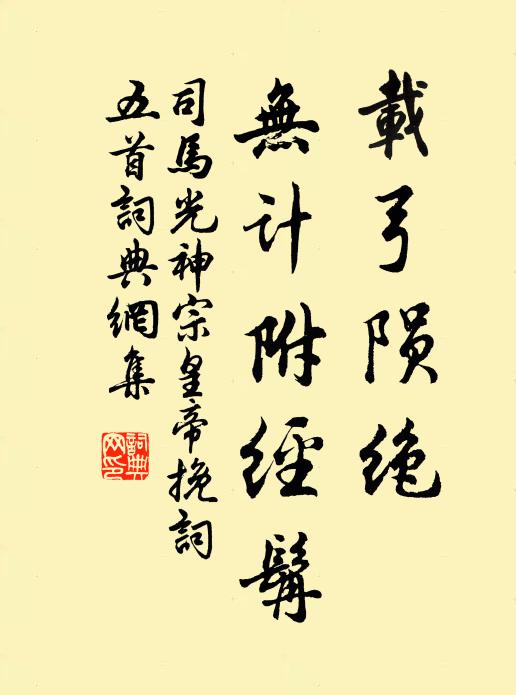 載弓陨绝
無计附經髯
司馬光神宗皇帝挽詞
五首詞典網集
詞典
网印